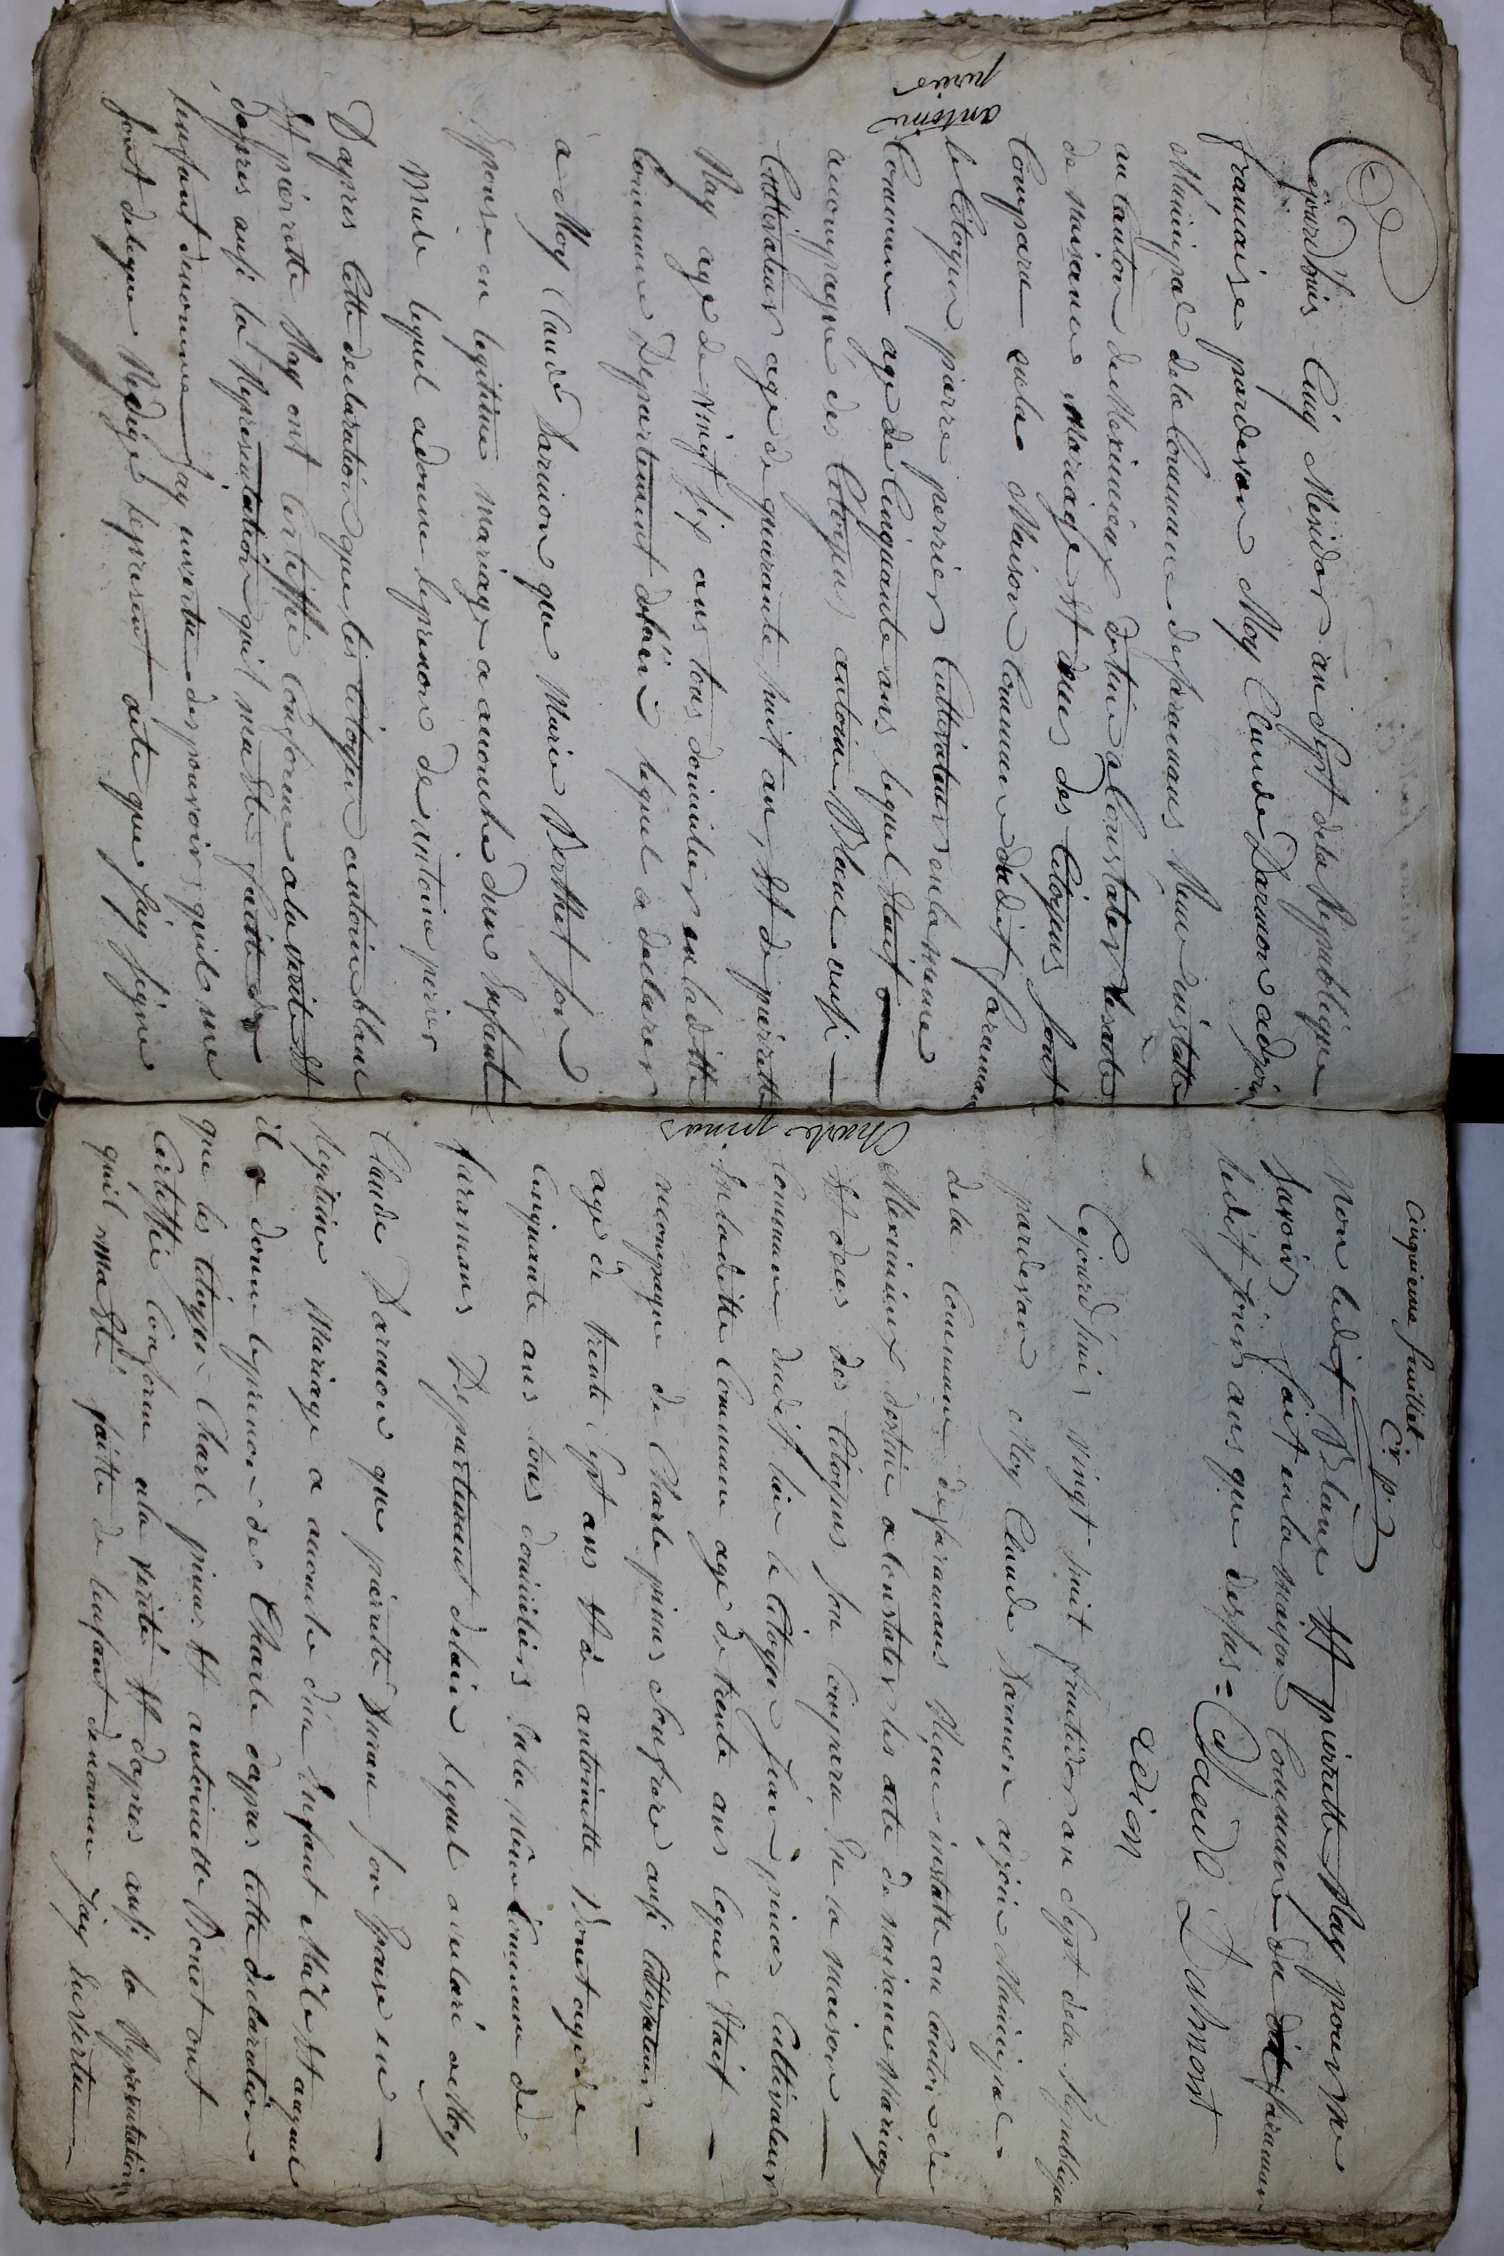 antoine
perier
Cejourdhuis Cinq Mesidor an Sept dela Republique
francaise pardevan Moy Claude Darmon adjoin
Municipal dela Commune desfaramans Neuv innstalle
au Canton de Meximieux destine a Constater lesacte
de naisance Mariage Et deces des Citoyens sont
Comparu enla Maison Commune dudit faraman
le Citoyen pierre perrier Cultivateur enla même
Commune age de Cinquante ans lequel Etait
accompagné des Citoyens antoine Blanc aussi
Cultivateur age de quarante huit an Et de pierrette
Nay age de Vingt six ans tous domicilies en laditte
Commune Departement delain lequel a declarer
a Moy Claude Darmon que Marie Berthet son
Epouse en legitime mariage a acouche dun Enfant
Male lequel adonne leprenon de antoine perier
Dapres Cette declaration que les Citoyen antoine blanc
Et pierrette Nay ont Certiffie Conforme ala verite Et
dapres ausi la Representation quil ma Ete faitte de
lenfant denomme Jay envertu des pouvoirs quil me
sont delegue Redige lepresent acte que Jay signe
Cinquieme feuillet Cr. p.
Non ledit Blanc Et pierrette Nay pour ne
savoir fait en la maison Commune du dit faraman
ledit jours ans que dessus = Claude Darmont
adion
Charle pinas
Cejourdhui Vingt huit fructidor an Sept dela Republique
pardevan Moy Claude Darmon adjoin Municipal
dela Commune desfaramans Neuv installe au Canton de
Meximieux destine a Constater les acte de naisance Mariage
Et deces des Citoyens son Comparu En la maison
Commune dudit lieu le Citoyen Jean pinas Cultivateur
En ladite Commune age de trente ans lequel Etait
acompagne de Charle pinas Son frere ausi Cultivateur
age de trente Sept ans Et de antoinette Donet agé de
Cinquante ans tous domiciliers enla même Commune de
faramans Departement delain lequel a declaré a Moy
Claude Darmon que pierrette Duran son Epouse en
legitime Mariage a acouche dun Enfant Mâle Et auquel
il a donne leprenon de Charle dapres Cette declaration
que les Citoyen Charle pinas Et antoinette Donet ont
Certiffie Conforme ala verité Et dapres ausi la Representation
quil ma Eté faitte de lenfant denomme Jay Envertu